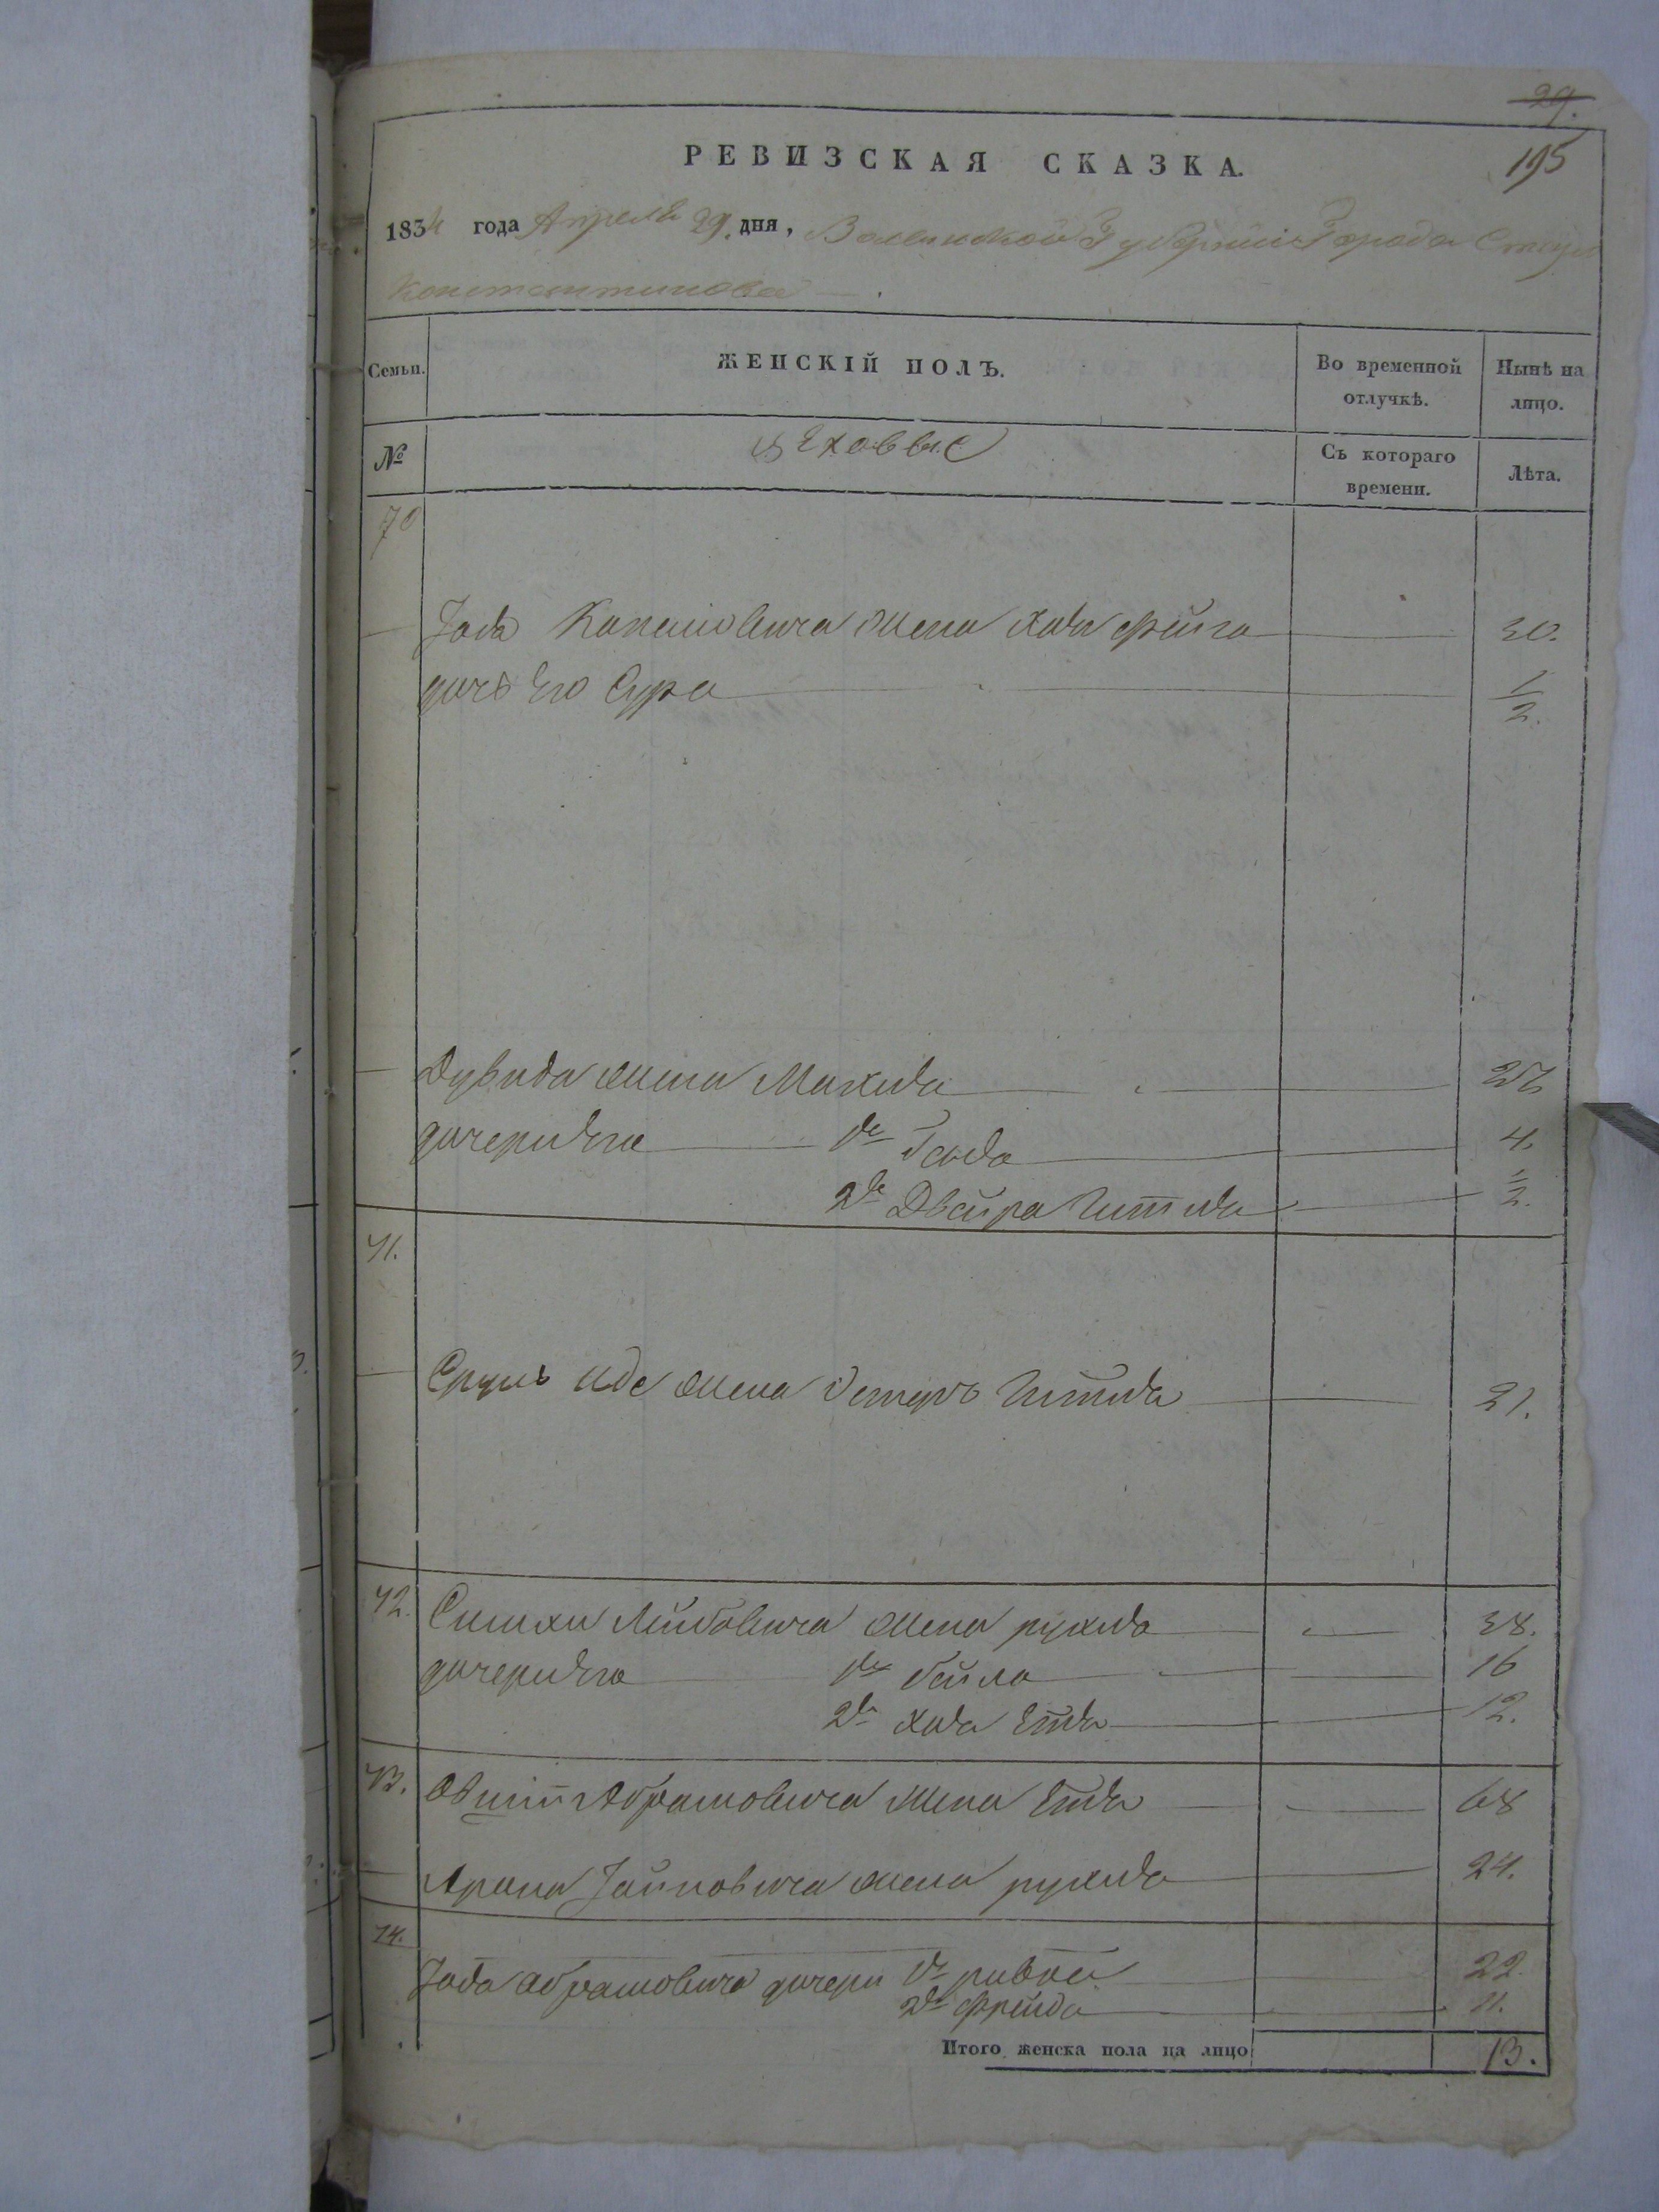 29.
РЕВИЗСКАЯ СКАЗКА.
195
1834 года Апреля 29. дня, Волынской Губерніи Города Стар
Константинова
Семьи.
ЖЕНСКІЙ ПОЛЪ.
Во временной отлучкѣ.
Нынѣ на лицо.
№
цеховые
Съ котораго времени.
Лѣта.
70
жена Хая Фейга 30.
дочь Его Сура 1/2.
Дувида жена Малка 26
дочери Его 1я 4.
2я Двейра Гитля 1/2.
71.
Сруль жена Естеръ Гитля 21.
72. Симхи Лейбовича жена рухля 38.
дочери Его 1я бейла 16
2я Хая Етля 12.
73. Абрамовича жена Етля 68
Арона жена рухля 24.
74.
Абрамовича дочери 1я ривка 22.
2я Фрейда 11.
Итого женска пола на лицо 13.